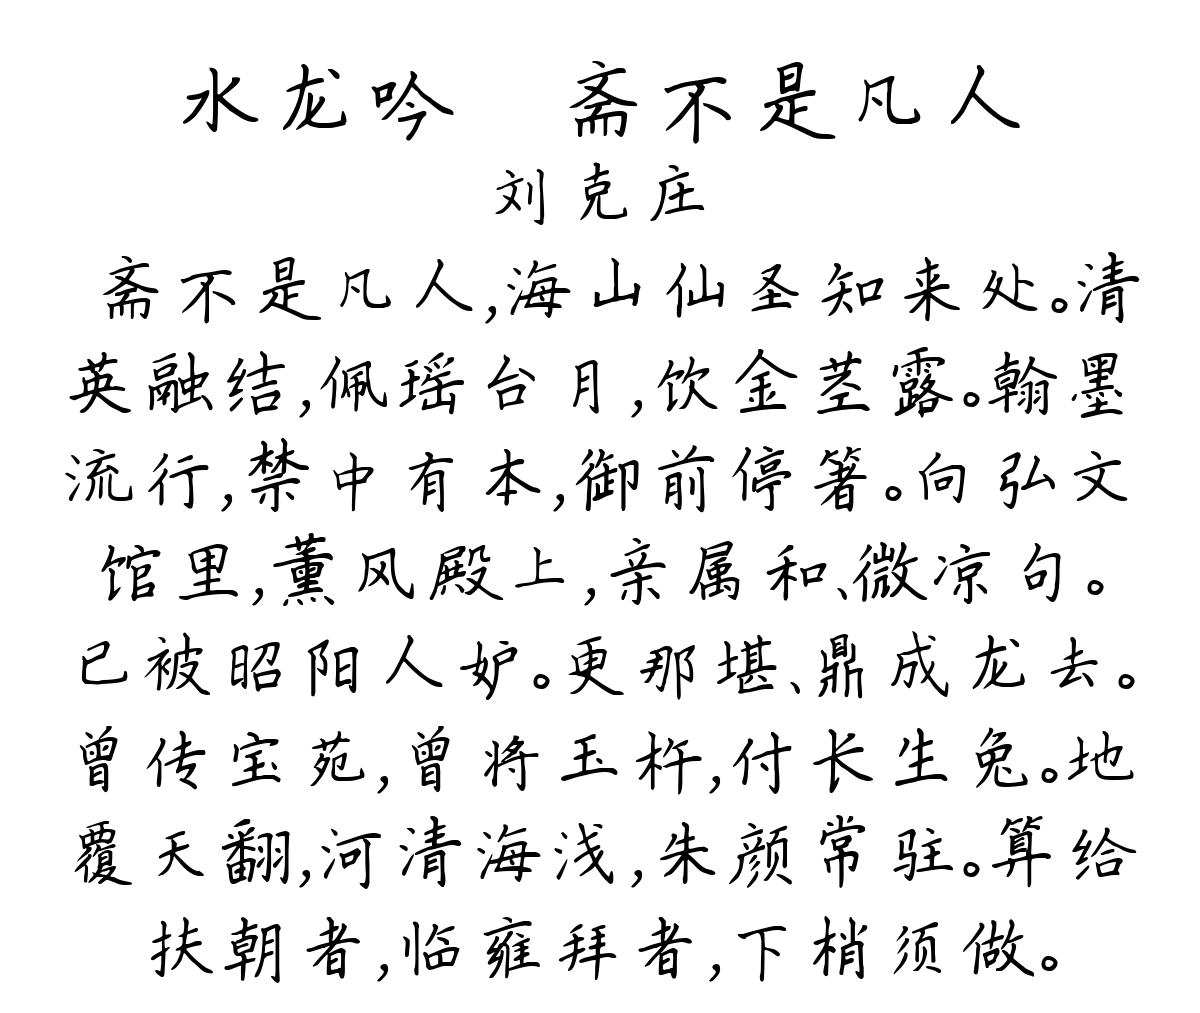 水龙吟　斋不是凡人
刘克庄
斋不是凡人,海山仙圣知来处。清
英融结,佩瑶台月,饮金茎露。翰墨
流行,禁中有本,御前停箸。向弘文
馆里,薰风殿上,亲属和、微凉句。
已被昭阳人妒。更那堪、鼎成龙去。
曾传宝苑,曾将玉杵,付长生兔。地
覆天翻,河清海浅,朱颜常驻。算给
扶朝者,临雍拜者,下梢须做。